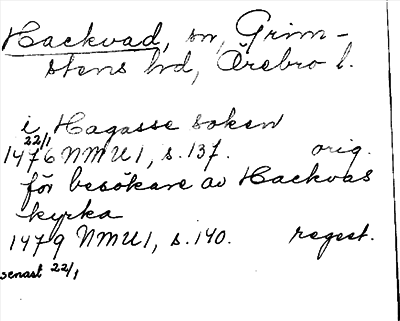 Hackvad, sn, Grim-
stens hd, Örebro l.
i Hagasse soken
22/1
1476 NMU 1, s. 137. orig.
för besökare av Hackvas
kyrka
1479 NMU 1, s. 140. regest.
senast 22/1